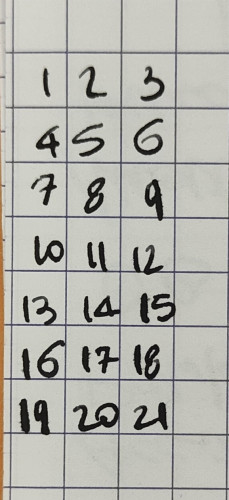 1 2 3
4 5 6
7 8 9
10 11 12
13 14 15
16 17 18
19 20 21